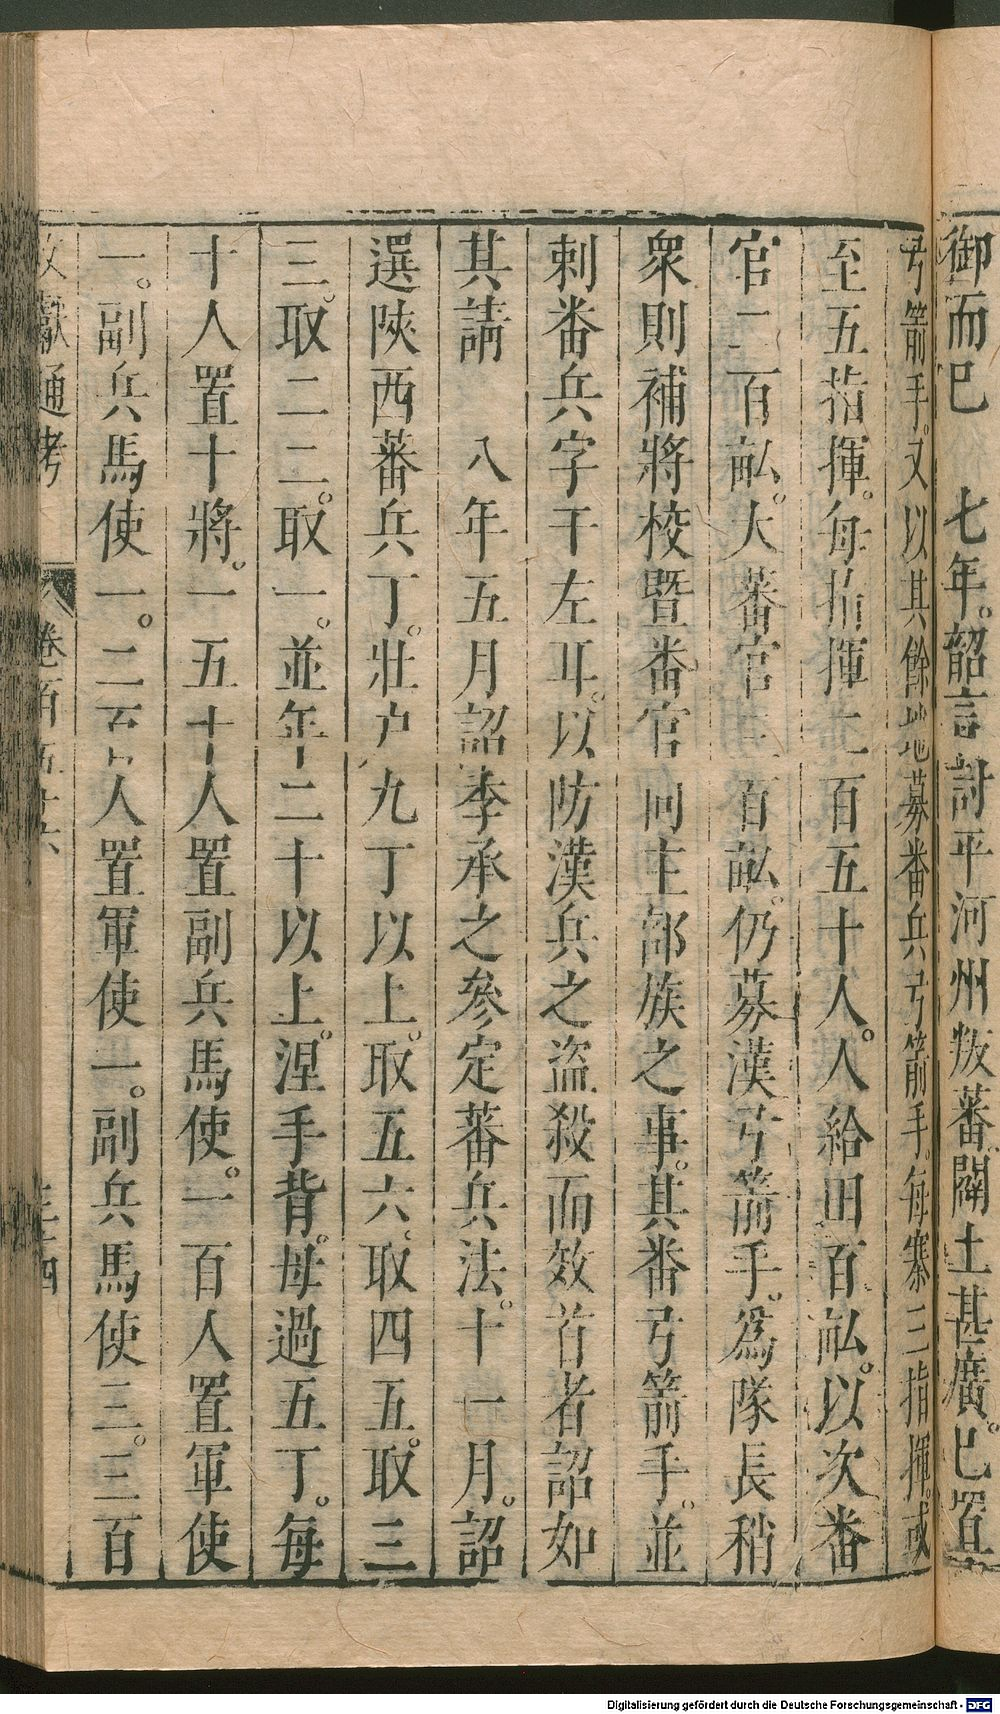 御而已　七年。韶言討平河州叛蕃。闢土甚廣。已置
弓箭手。又以其餘地募番兵弓箭手。每寨三指揮。或
至五指揮。每指揮二百五十人。人給田百畝。以次番
官二百畝。大蕃官三百畝。仍募漢弓箭手。爲隊長稍
衆則補將校暨番官同主部族之事。其番弓箭手。並
刺番兵字于左耳。以防漢兵之盜殺而效首者詔如
其請　八年五月詔李承之參定蕃兵法。十一月。詔
選陝西蕃兵丁。壯户九丁以上。取五六、取四五。取三
三。取二二。取一。並年二十以上。涅手背。毋過五丁。每
十人置十將。一五十人置副兵馬使。一百人置軍使
一。副兵馬使一。二百人置軍使一。副兵馬使三。三百
文獻通考　卷百五十六　三十四
Digitalisierung gefördert durch die Deutsche Forschungsgemeinschaft - DFG